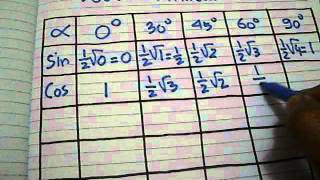 α 0° 30° 45° 60° 90°
Sin ½√0=0 ½√1=½ ½√2 ½√3 ½√4=1
Cos 1 ½√3 ½√2